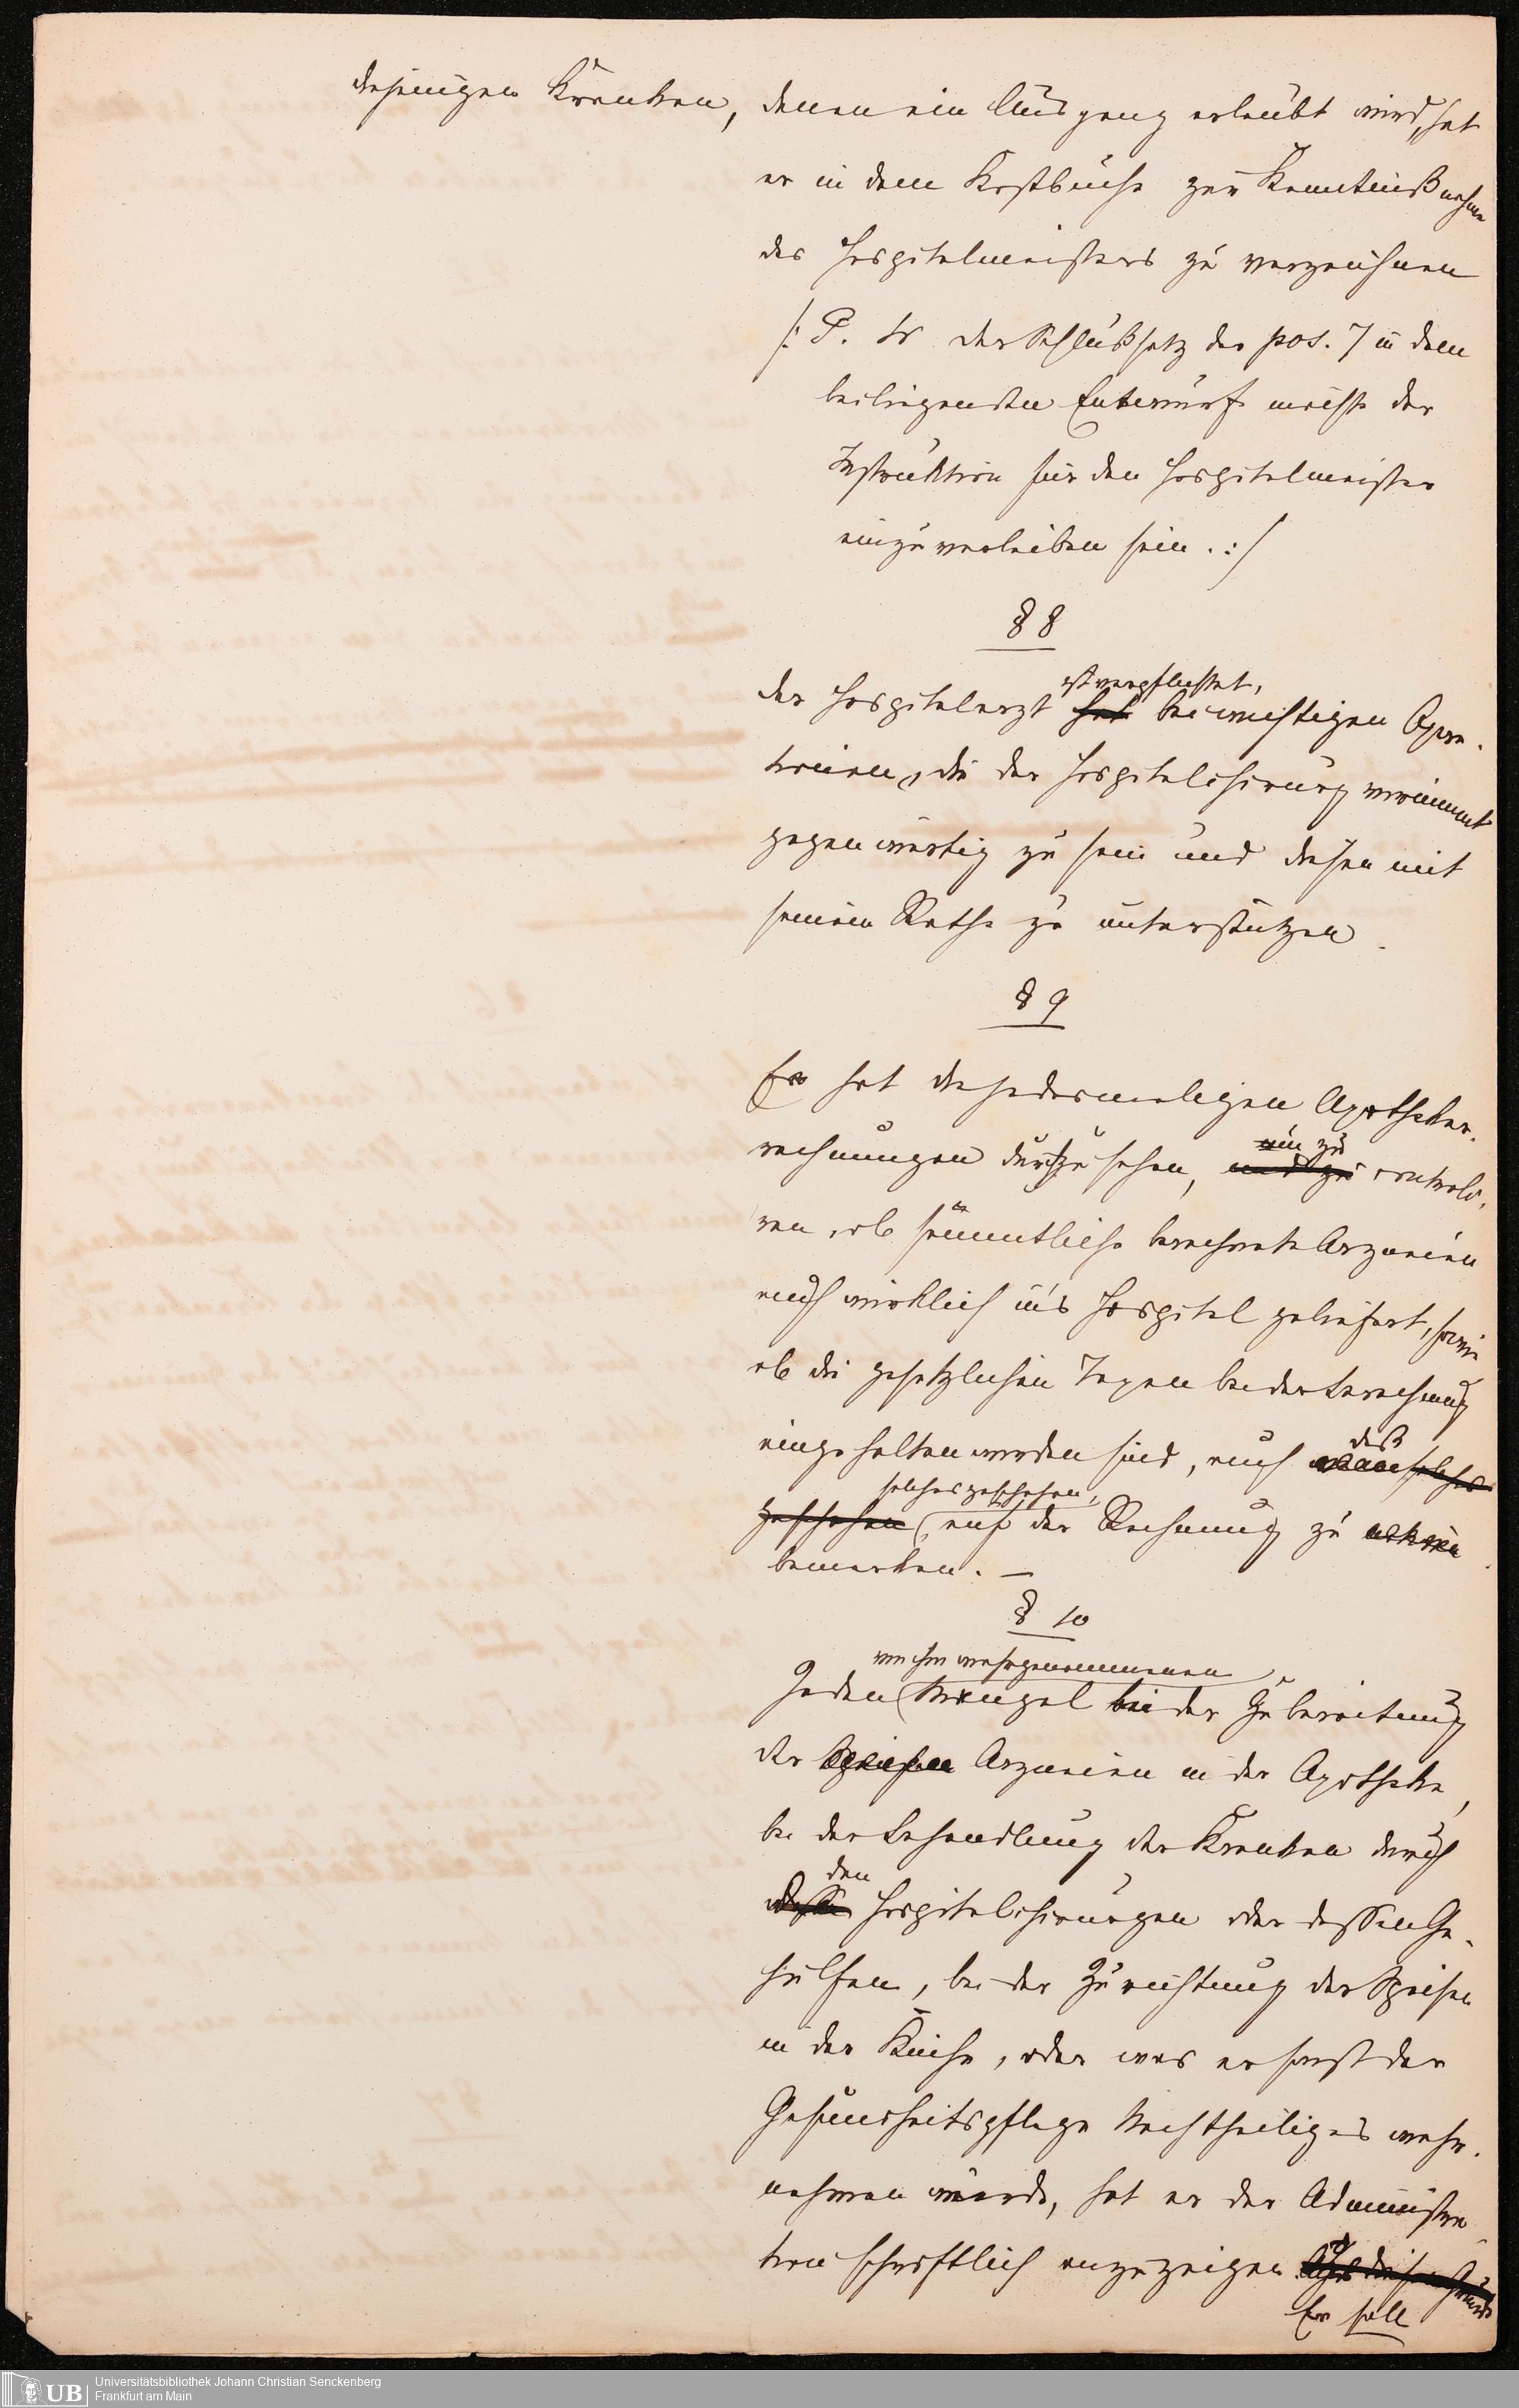 diejenigen Kranken, denen ein Ausgang erlaubt wird, hat
er in dem Kostbuche zur Kenntnißnahme
des Hospitalmeisters zu verzeichnen
/: P. M der Schlußsatz der pos. 7 in dem
beiliegenden Entwurf möchte der
Instruktion für den Hospitalmeister
einzuverleiben sein. :/
§ 8
ist verpflichtet,
der Hospitalarzt hat bei wichtigen Opera-
tionen, die der Hospitalchirurg vornimmt
gegenwärtig zu sein und diesen mit
seinem Rathe zu unterstützen.
§ 9
Er hat die jedesmaligen Apotheker-
um zu
rechnungen durchzusehen, und zu controli-
ren, ob sämmtliche berechnete Arzneien
auch wirklich in's Hospital geliefert, sowie
ob die gesetzlichen Taxen bei der Berechnung
eingehalten worden sind, auch
daß
solches geschehen,
geschehen, auf der Rechnung zu
bemerken. —
§ 10
von ihm wahrgenommenen
Jeden Mangel bei der Zubereitung
der Speisen Arzneien in der Apotheke,
bei der Behandlung der Kranken durch
den
Hospitalchirurgen oder dessen Ge-
hülfen, bei der Zurichtung der Speisen
in der Küche, oder was er sonst der
Gesundheitspflege Nachtheiliges wahr-
nehmen würde, hat er der Administra-
tion schriftlich anzuzeigen.
Er soll
UB
Universitätsbibliothek Johann Christian Senckenberg
Frankfurt am Main